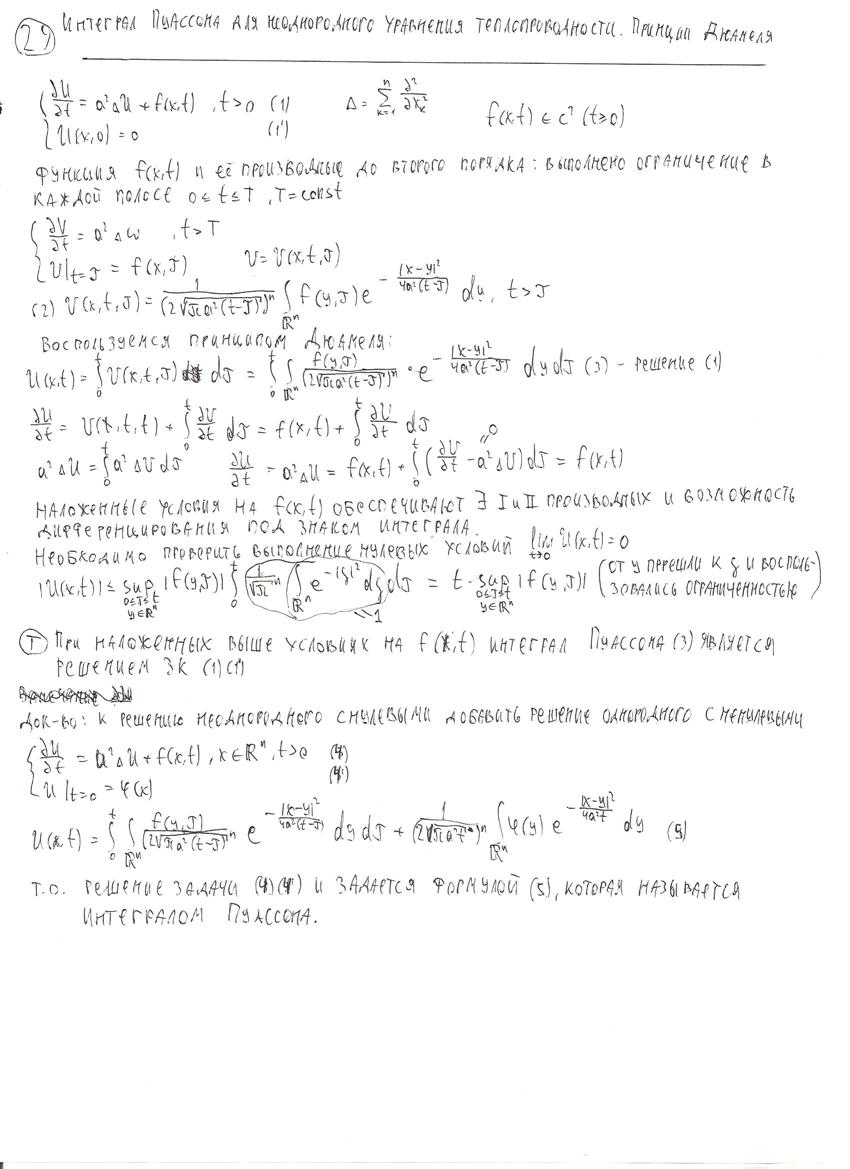 29 Интеграл Пуассона для неоднородного уравнения теплопроводности. Принцип Дюамеля
{ ∂U/∂t = a²ΔU + f(x,t) , t>0 (1) Δ = Σ_{k=1}^{n} ∂²/∂x_k² f(x,t) ∈ C² (t≥0)
{ U(x,0) = 0 (1')
Функция f(x,t) и её производные до второго порядка: выполнено ограничение в
каждой полосе 0 ≤ t ≤ T , T = const
{ ∂V/∂t = a²Δω , t>T
{ V|_{t=τ} = f(x,τ) V = V(x,t,τ)
(2) V(x,t,τ) = 1/(2√(πa²(t-τ)))ⁿ ∫_{ℝⁿ} f(y,τ) e^{-|x-y|²/(4a²(t-τ))} dy, t>τ
Воспользуемся принципом Дюамеля:
U(x,t) = ∫_0^t V(x,t,τ) dτ = ∫_0^t ∫_{ℝⁿ} f(y,τ)/(2√(πa²(t-τ)))ⁿ · e^{-|x-y|²/(4a²(t-τ))} dy dτ (3) - решение (1)
∂U/∂t = V(x,t,t) + ∫_0^t ∂V/∂t dτ = f(x,t) + ∫_0^t ∂V/∂t dτ
a²ΔU = ∫_0^t a²ΔV dτ ∂U/∂t - a²ΔU = f(x,t) + ∫_0^t (∂V/∂t - a²ΔV) dτ = f(x,t) = 0
Наложенные условия на f(x,t) обеспечивают ∃ I и II производных и возможность
дифференцирования под знаком интеграла.
Необходимо проверить выполнение нулевых условий lim_{t→0} U(x,t) = 0
|U(x,t)| ≤ sup_{0≤τ≤t, y∈ℝⁿ} |f(y,τ)| ∫_0^t (1/√πⁿ ∫_{ℝⁿ} e^{-|ξ|²} dξ) dτ = t · sup_{0≤τ≤t, y∈ℝⁿ} |f(y,τ)| (от y перешли к ξ и восполь-
зовались ограниченностью) =1
Т При наложенных выше условиях на f(x,t) интеграл Пуассона (3) является
решением ЗК (1) (1')
Док-во: к решению неоднородного с нулевыми добавить решение однородного с ненулевыми
{ ∂U/∂t = a²ΔU + f(x,t) , x∈ℝⁿ , t>0 (4)
{ U|_{t=0} = φ(x) (4')
U(x,t) = ∫_0^t ∫_{ℝⁿ} f(y,τ)/(2√(πa²(t-τ)))ⁿ e^{-|x-y|²/(4a²(t-τ))} dy dτ + 1/(2√(πa²t))ⁿ ∫_{ℝⁿ} φ(y) e^{-|x-y|²/(4a²t)} dy (5)
Т.о. решение задачи (4) (4') и задается формулой (5), которая называется
интегралом Пуассона.